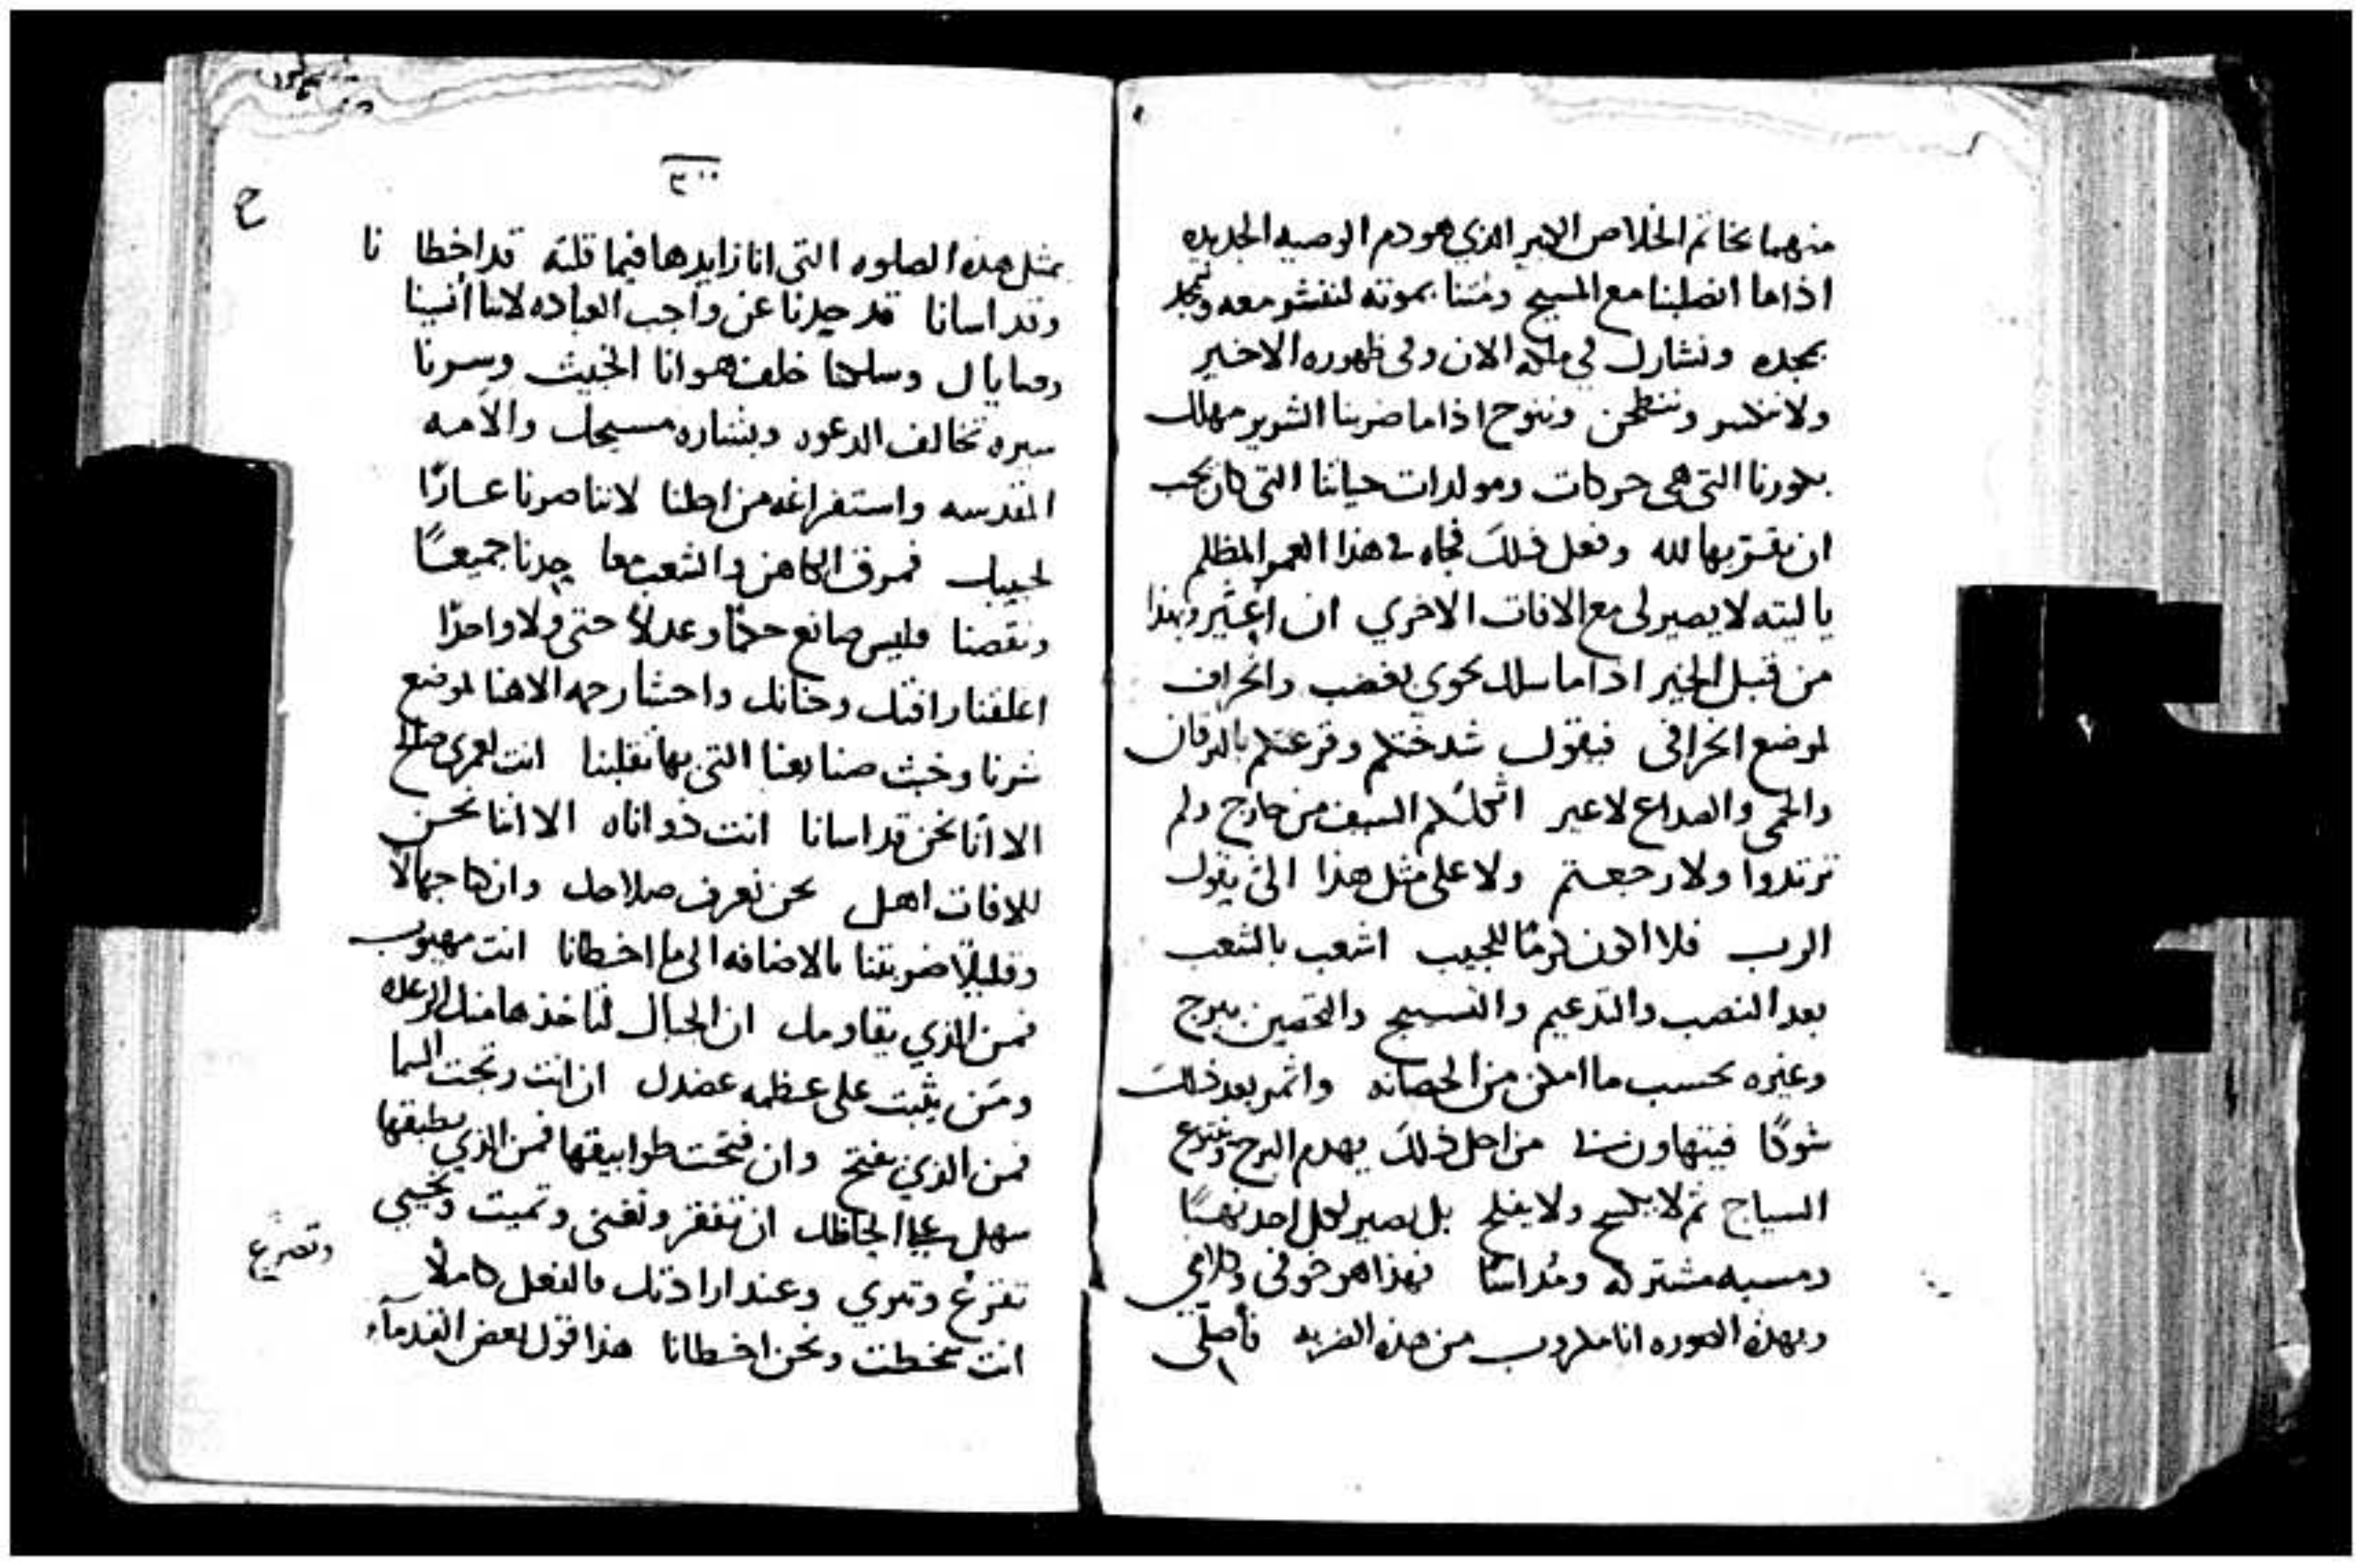 منهما بخاتم الخلاص الاخير الذي هو دم الوصيه الجديده
اذا ما انصلبنا مع المسيح ومتنا بموته لننشو معه ونمجد
بمجده ونشارك في ملكه الان وفي ظهوره الاخير
ولا ننكسر وننطحن وننوح اذا ما ضربنا الشرير مهلك
بكورنا التي هي حركات ومولدات حياتنا التي كان يجب
ان نقربها لله وفعل ذلك فجاه في هذا العمر المظلم
يا ليته لا يصير لي مع الافات الاخري ان اعير وبهذا
من قبل الخير اذا ما سلك نحوي بغضب وانحراف
لموضع انحرافي فيقول شدختكم وقرعتكم باليرقان
والحمي والصداع لا غير اثكلكم السيف من خارج ولم
ترتدوا ولا رجعتم ولا علي مثل هذا التي يقول
الرب فلا اكون كرمًا للحبيب اشعب بالشعب
بعد النصب والتدعيم والتسييج والتحصين ببرج
وغيره بحسب ما امكن من الحصانه واثمر بعد ذلك
شوكًا فيتهاون من اجل ذلك يهدم البرج وينزع
السياج ثم لا يكسح ولا يفلح بل يصير لكل احد نهبًا
ومسبه مشتركه ومُداسًا فهذا هو خوفي وكلامي
وبهذه الصوره انا مكروب من هذه الضربه فأصلّي
٣٠٠
ح
بمثل هذه الصلوه التي انا زايدها فيما قلته قد اخطانا
وقد اسانا قد حِدنا عن واجب العباده لاننا أنسينا
وصاياك وسلكنا خلف هوانا الخبيث وسرنا
سيره تخالف الدعوه وبشاره مسيحك والامه
المقدسه واستفراغه من اجلنا لاننا صرنا عارًا
لحبيبك فمرق الكاهن والشعب معا حِدنا جميعًا
ونقصنا فليس صانع حكمًا وعدلاً حتى ولا واحدًا
اغلقنا رافتك وحنانك واحشا رحمه الاهنا لموضع
شرنا وخبث صنايعنا التي بها تقلبنا انت لعمري صالح
الا أنّا نحن قد اسانا انت ذو اناه الا اننا نحن
للافات اهل نحن نعرف صلاحك وان كنا جهالاً
وقليلاً ضربتنا بالاضافه الى ما اخطانا انت مهيوب
فمن الذي يقاومك ان الجبال لتاخذها منك الرعده
ومن يثبت على عظمه عضدك ان انت رتجت السما
فمن الذي يفتح وان فتحت طوابيقها فمن الذي يطبقها
سهل عليا لحاظك ان تفقر وتغني وتميت وتحيي
وتصرع
تقرع وتبري وعند ارادتك فالفعل كاملًا
انت سخطت ونحن اخطانا هذا قول بعض القدمآء